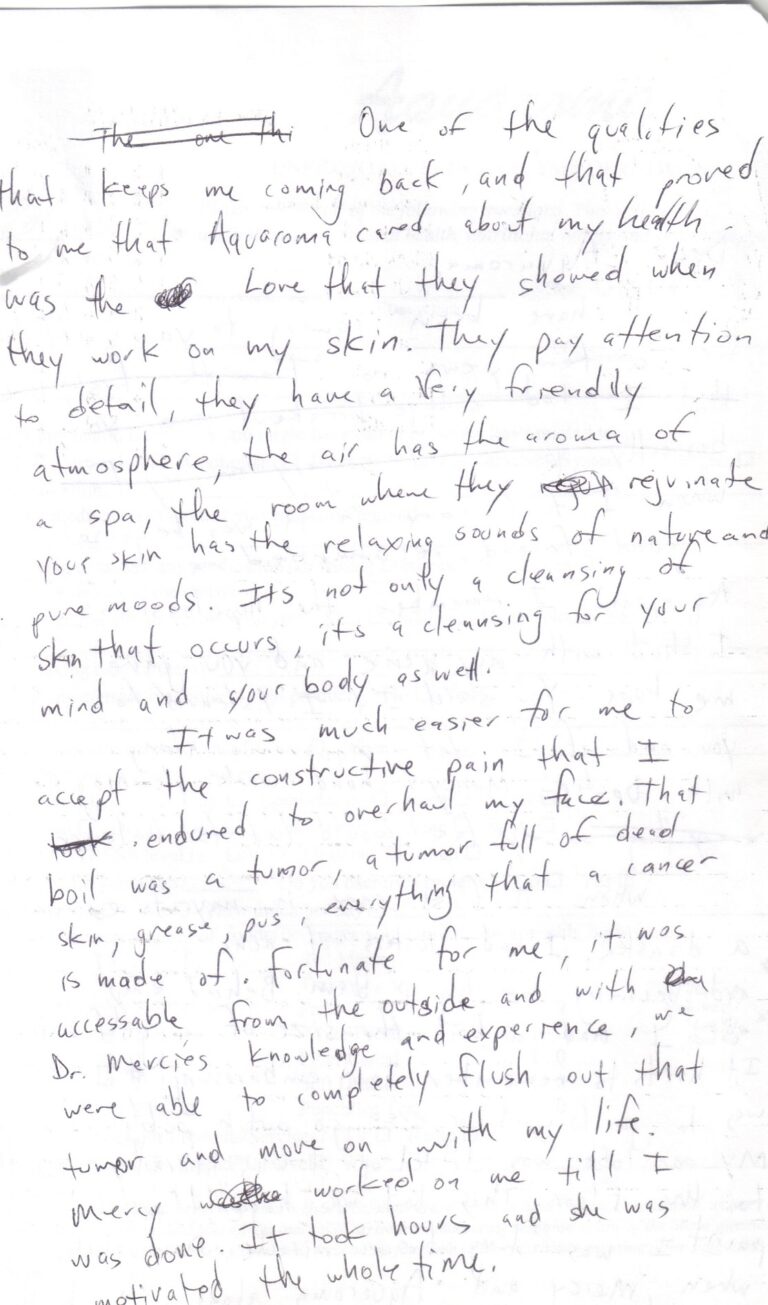 The one Thi One of the qualities
that keeps me coming back, and that proved
to me that Aquaroma cared about my health
was the Love that they showed when
they work on my skin. They pay attention
to detail, they have a very friendily
atmosphere, the air has the aroma of
a spa, the room where they rejuinate
your skin has the relaxing sounds of nature and
pure moods. Its not only a cleansing of
skin that occurs, its a cleansing for your
mind and your body as well.
It was much easier for me to
accept the constructive pain that I
took endured to overhaul my face. That
boil was a tumor, a tumor full of dead
skin, grease, pus, everything that a cancer
is made of. Fortunate for me, it was
accessable from the outside and with
Dr. Mercies knowledge and experience, we
were able to completely flush out that
tumor and move on with my life.
Mercy worked on me till I
was done. It took hours and she was
motivated the whole time.